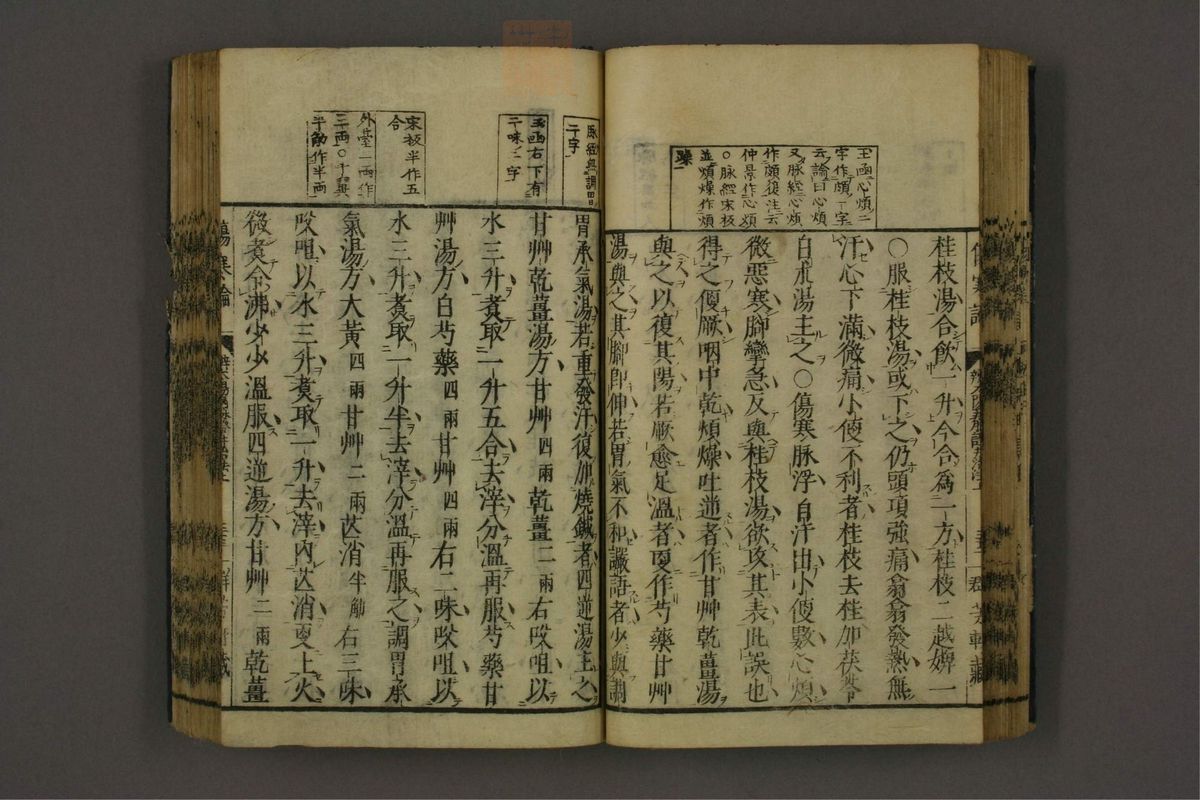 玉函心煩二
字作頗丁字
云論曰心煩
又脉經心煩
作頗復注云
仲景作心煩
○脉經宋板
並煩燥作煩
躁
桂枝湯合飲一升今合爲一方桂枝二越婢一
○服桂枝湯或下之仍頭項強痛翕翕發熱無
汗心下滿微痛小便不利者桂枝去桂加茯苓
白朮湯主之○傷寒脉浮自汗出小便數心煩
微惡寒脚攣急反與桂枝湯欲攻其表此誤也
得之便厥咽中乾煩燥吐逆者作甘艸乾薑湯
與之以復其陽若厥愈足溫者更作芍藥甘艸
湯與之其脚卽伸若胃氣不和讝語者少與調
脉經無調胃
二字
胃承氣湯若重發汗復加燒鍼者四逆湯主之
玉函右下有
二味二字
甘艸乾薑湯方甘艸四兩乾薑二兩右㕮咀以
水三升煮取一升五合去滓分溫再服芍藥甘
艸湯方白芍藥四兩甘艸四兩右二味㕮咀以
宋板半作五
合
水三升煮取一升半去滓分溫再服之調胃承
外臺二兩作
三兩○千翼
半觔作半兩
氣湯方大黃四兩甘艸二兩芒消半觔右三味
㕮咀以水三升煮取一升去滓內芒消更上火
微煮令沸少少溫服四逆湯方甘艸二兩乾薑
傷寒論